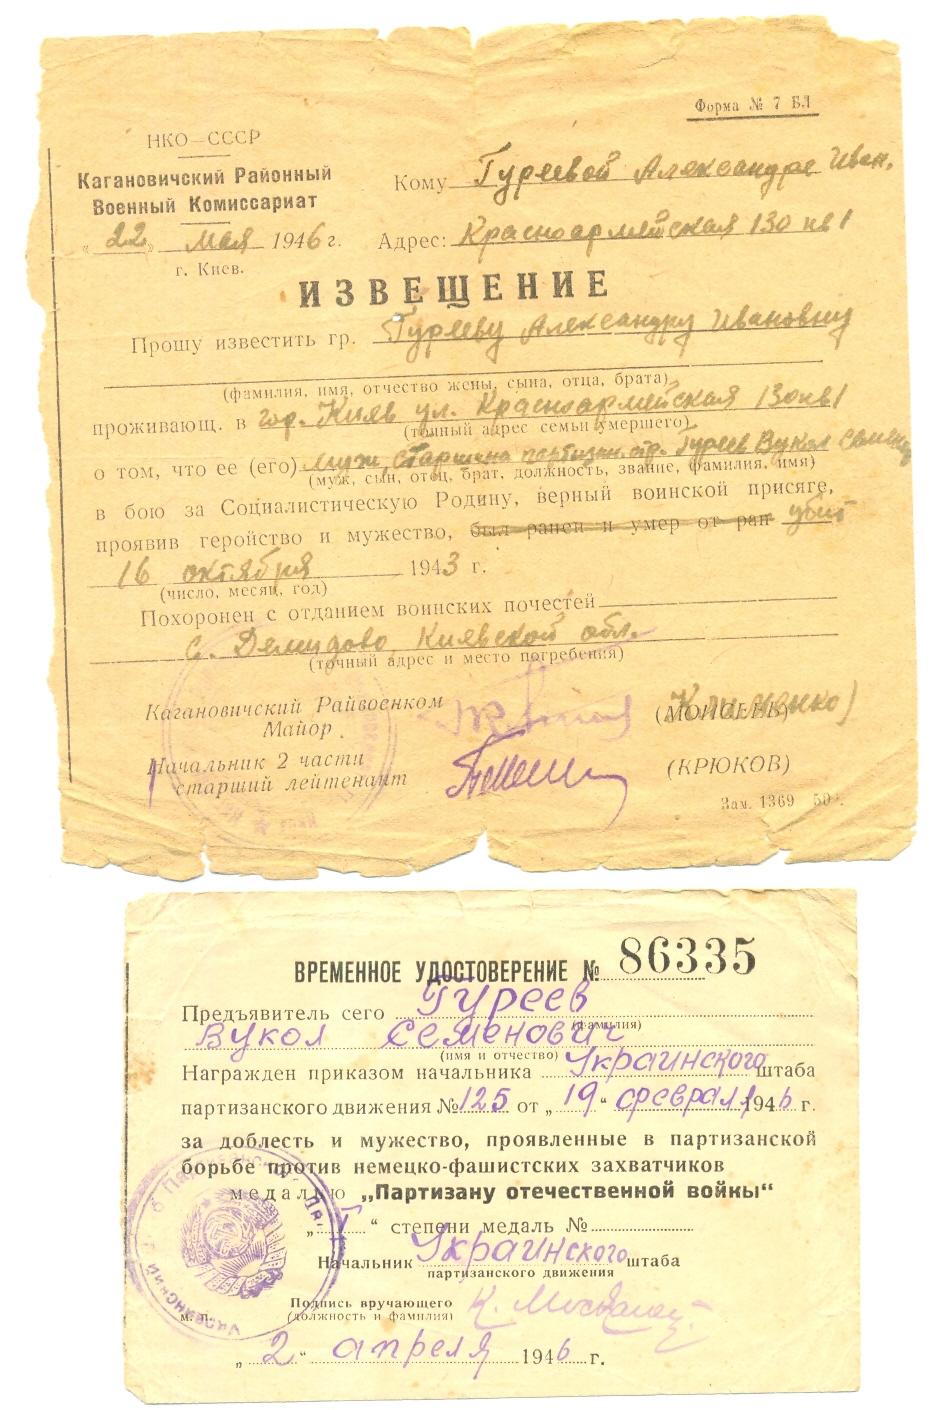 Форма № 7 БЛ
НКО—СССР
Кагановичский Районный
Военный Комиссариат
„22„ мая 1946 г.
г. Киев.
Кому Гуреевой Александре Иван.
Адрес: Красноармейская 130 кв 1
ИЗВЕЩЕНИЕ
Прошу известить гр. Гурееву Александру Ивановну
(фамилия, имя, отчество жены, сына, отца, брата)
проживающ. в гор. Киев ул. Красноармейская 130 кв 1
(точный адрес семьи умершего)
о том, что ее (его) муж, старшина партизан. отр. Гуреев Вукол Семенов
(муж, сын, отец, брат, должность, звание, фамилия, имя)
в бою за Социалистическую Родину, верный воинской присяге,
проявив геройство и мужество, был ранен и умер от ран убит
16 октября 1943 г.
(число, месяц, год)
Похоронен с отданием воинских почестей
с. Демидово, Киевской обл.
(точный адрес и место погребения)
Кагановичский Райвоенком
Майор (Клименко)
Начальник 2 части
старший лейтенант (КРЮКОВ)
Зам. 1369
ВРЕМЕННОЕ УДОСТОВЕРЕНИЕ № 86335
Предъявитель сего Гуреев
(фамилия)
Вукол Семенович
(имя и отчество)
Награжден приказом начальника Украинского штаба
партизанского движения № 125 от „19“ февраля 1946 г.
за доблесть и мужество, проявленные в партизанской
борьбе против немецко-фашистских захватчиков
медалью „Партизану отечественной войны“
„I“ степени медаль №
Начальник Украинского штаба
партизанского движения
Подпись вручающего
м. п. (должность и фамилия)
„2“ апреля 1946 г.